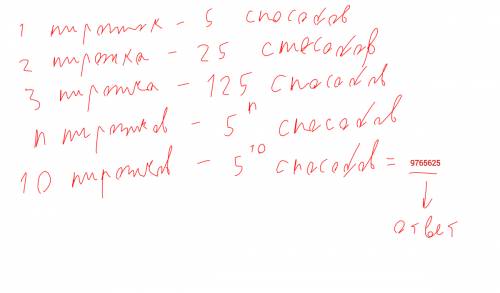 1 пирожок - 5 способов
2 пирожка - 25 способов
3 пирожка - 125 способов
n пирожков - 5^n способов
10 пирожков - 5^10 способов = 9765625
ответ